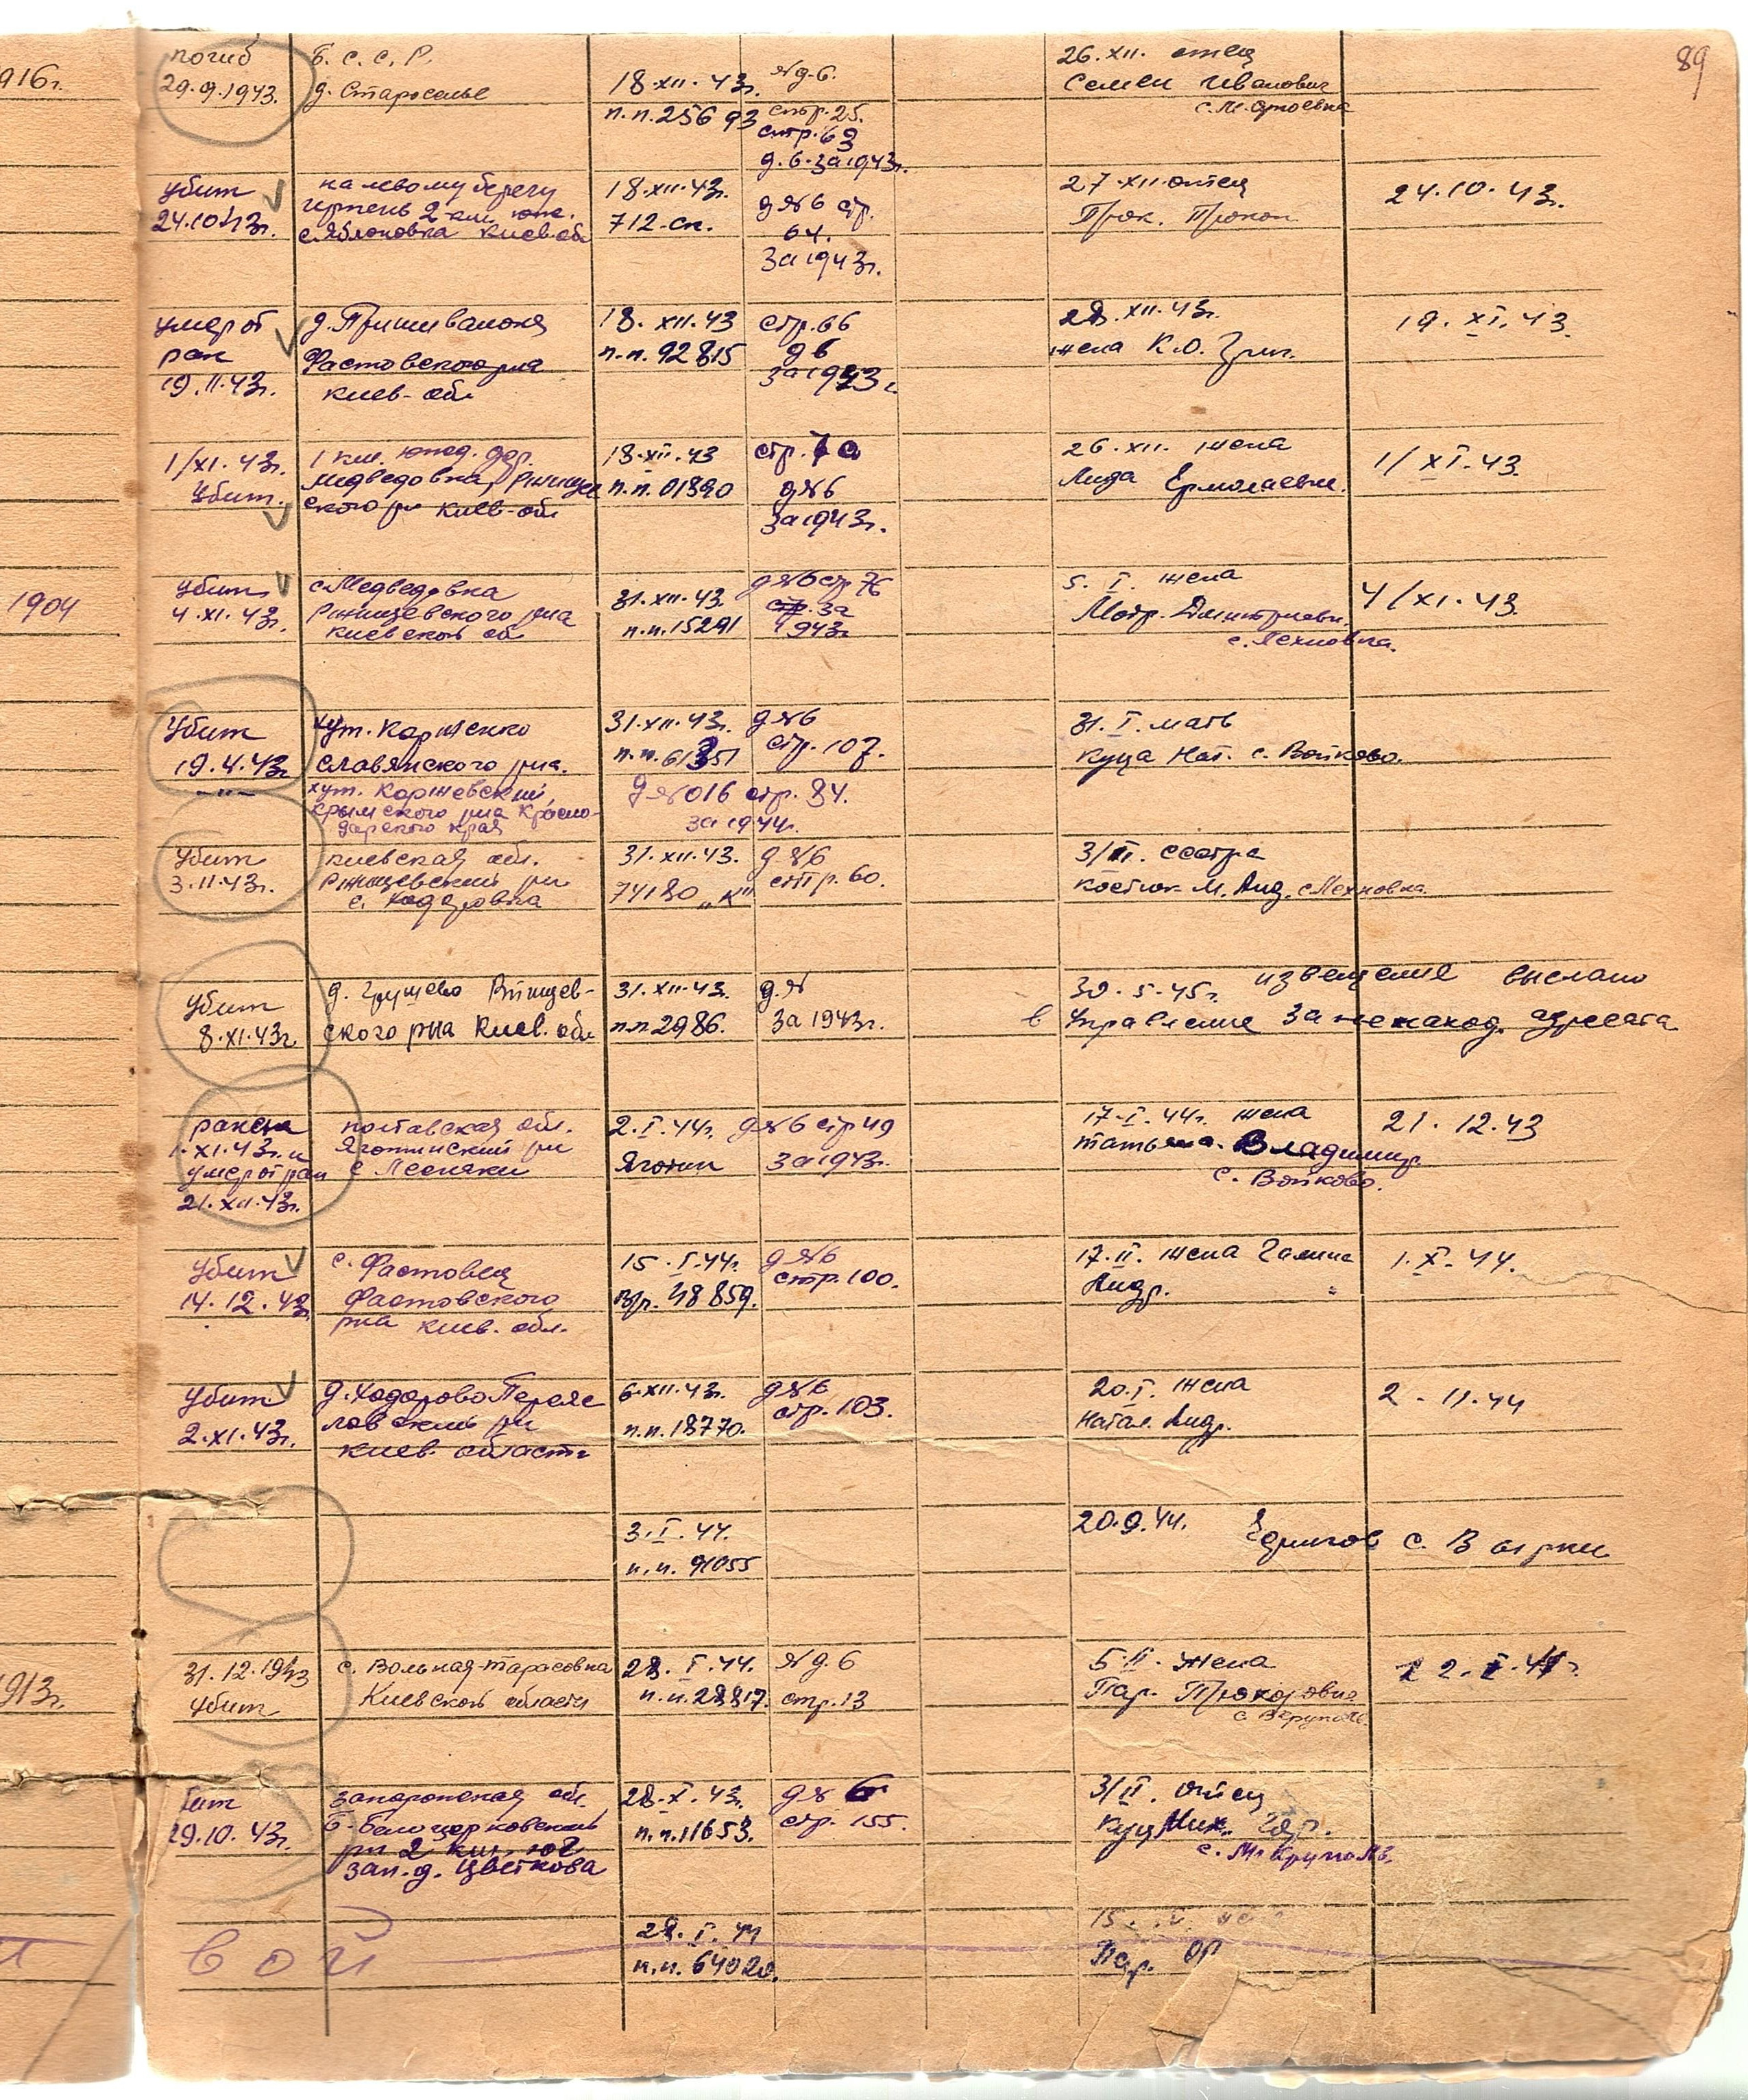 89
916г.
погиб
29.9.1943.
Б. С. С. Р.
д. Староселье
18.XII.43г.
п.п.25693
№ д.6.
стр.25.
стр.69
д.6.за 1943г.
26.XII. отец
Семен Иванович
убит
24.10.43г.
на левому берегу
ирпень 2 км. юж.
с.Яблоновка Киев.обл
18.XII.43г.
712.сп.
д№6 стр.
64.
за 1943г.
27.XII.отец
Прок. Прокоп
24.10.43г.
умер от
ран
19.11.43г.
Фастовского р-на
киев. обл
18.XII.43
п.п.92815
стр.66
д6
за 1943г.
28.XII.43г.
жена К.О. Григ.
19.XI.43.
1/XI.43г.
Убит.
1 км. юж. дер.
медведовка, Ржищев
ского р-н киев.обл
18.XII.43
п.п.01890
стр.
д№6
за 1943г.
26.XII. жена
Лида Ермолаевн.
1/XI.43.
1904
убит
4.XI.43г.
с.Медведовка
Ржищевского р-на
киевской об
31.XII.43.
п.п.15291
д№6 стр.76
стр. за
1943г.
5.I. жена
Мотр. Дмитриевн.
с.Пехновка.
4/XI.43.
Убит
19.4.43г.
-"-
хут. Корженко
Славянского р-на.
хут. Коржевский,
крымского р-на Красно-
дарского края
31.XII.43г.
п.п.61351
д№6
стр.107.
д№016 стр.84.
за 1944г.
31.I.мать
Куца Нат. с. Войково.
Убит
3.11.43г.
киевская обл.
Ржищевский р-н
с. Ходоровка
31.XII.43.
74180 „К"
д.№6
стр.60.
3/II. сестра
Костюк М. Анд.
Убит
8.XI.43г.
д. Грушево Ржищев-
ского р-на Киев. обл
31.XII.43.
п.п 2986.
д.№
за 1943г.
30.5.45г. извещение выслано
в управление за ненаход. адресата
ранен
1.XI.43г. и
умер от ран
21.XII.43г.
полтавская обл.
Яготинский р-н
с Лесняки
2.I.44г.
Яготин
д№6 стр 49
за 1943г.
17.I.44г. жена
татьяна. Владимир.
с. Войково.
21.12.43
Убит
14.12.43г.
с. Фастовец
Фастовского
р-на киев. обл.
15.I.44г.
вр. 48859.
д№6
стр.100.
17.II. жена Галина
Андр.
1.X.44.
Убит
2.XI.43г.
д.Ходорово Переяс
ловский р-н
киев. области
6.XII.43г.
п.п.18770.
д№6
стр.103.
20.I. жена
натал. Андр.
2.11.44
3.I.44.
п.п. 91055
20.9.44.
1913г.
31.12.1943
Убит
с. Вольная-тарасовка
Киевской области
28.I.44.
п.п.28817.
№ д.6
стр.13
5.II. жена
Пар. Прокоровна
убит
29.10.43г.
запорожская обл.
Б-Белоцерковский
р-н 2 км. юг
зап.д. Цветкова
28.X.43г.
п.п.11653.
д№ 6
стр. 155.
3/II. отец
Куц Мих.
с. М. Круполь.
вой
28.I.44
п.п. 64020.
Пар.